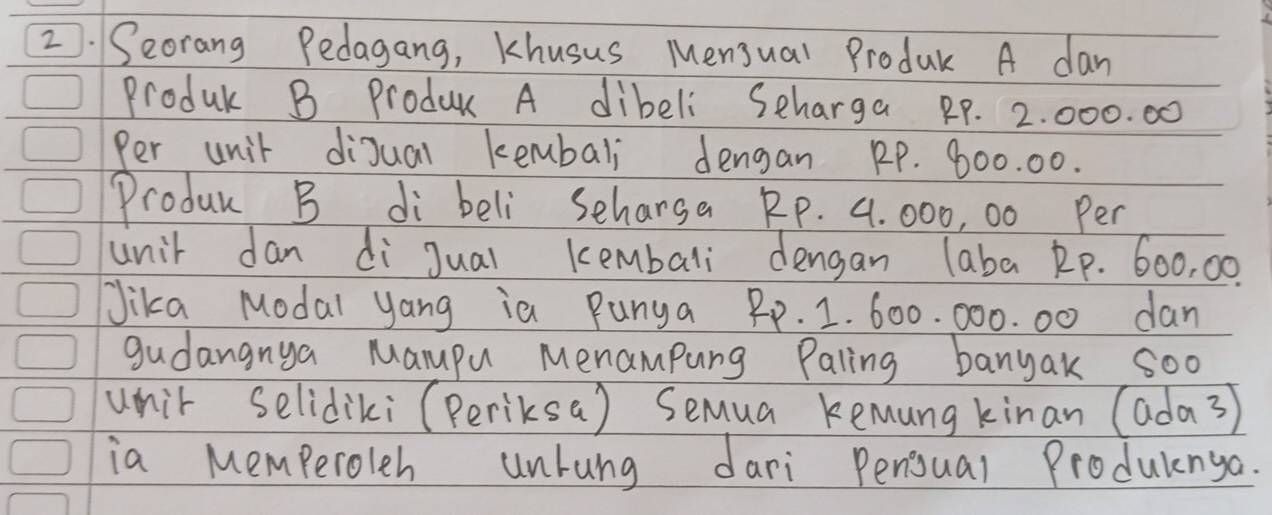 2. Seorang Pedagang, Khusus Menjual Produk A dan
Produk B Produk A dibeli Seharga RP. 2.000.00
Per unit dijual kembali dengan RP. 800.00.
Produk B di beli Seharga RP. 4.000,00 Per
unit dan di Jual kembali dengan laba RP. 600,00.
Jika Modal yang ia Punya RP. 1.600.000.00 dan
gudangnya Mampu Menampung Paling banyak 500
unit Selidiki (Periksa) Semua kemungkinan (ada 3)
ia Memperoleh untung dari Penjual Produknya.